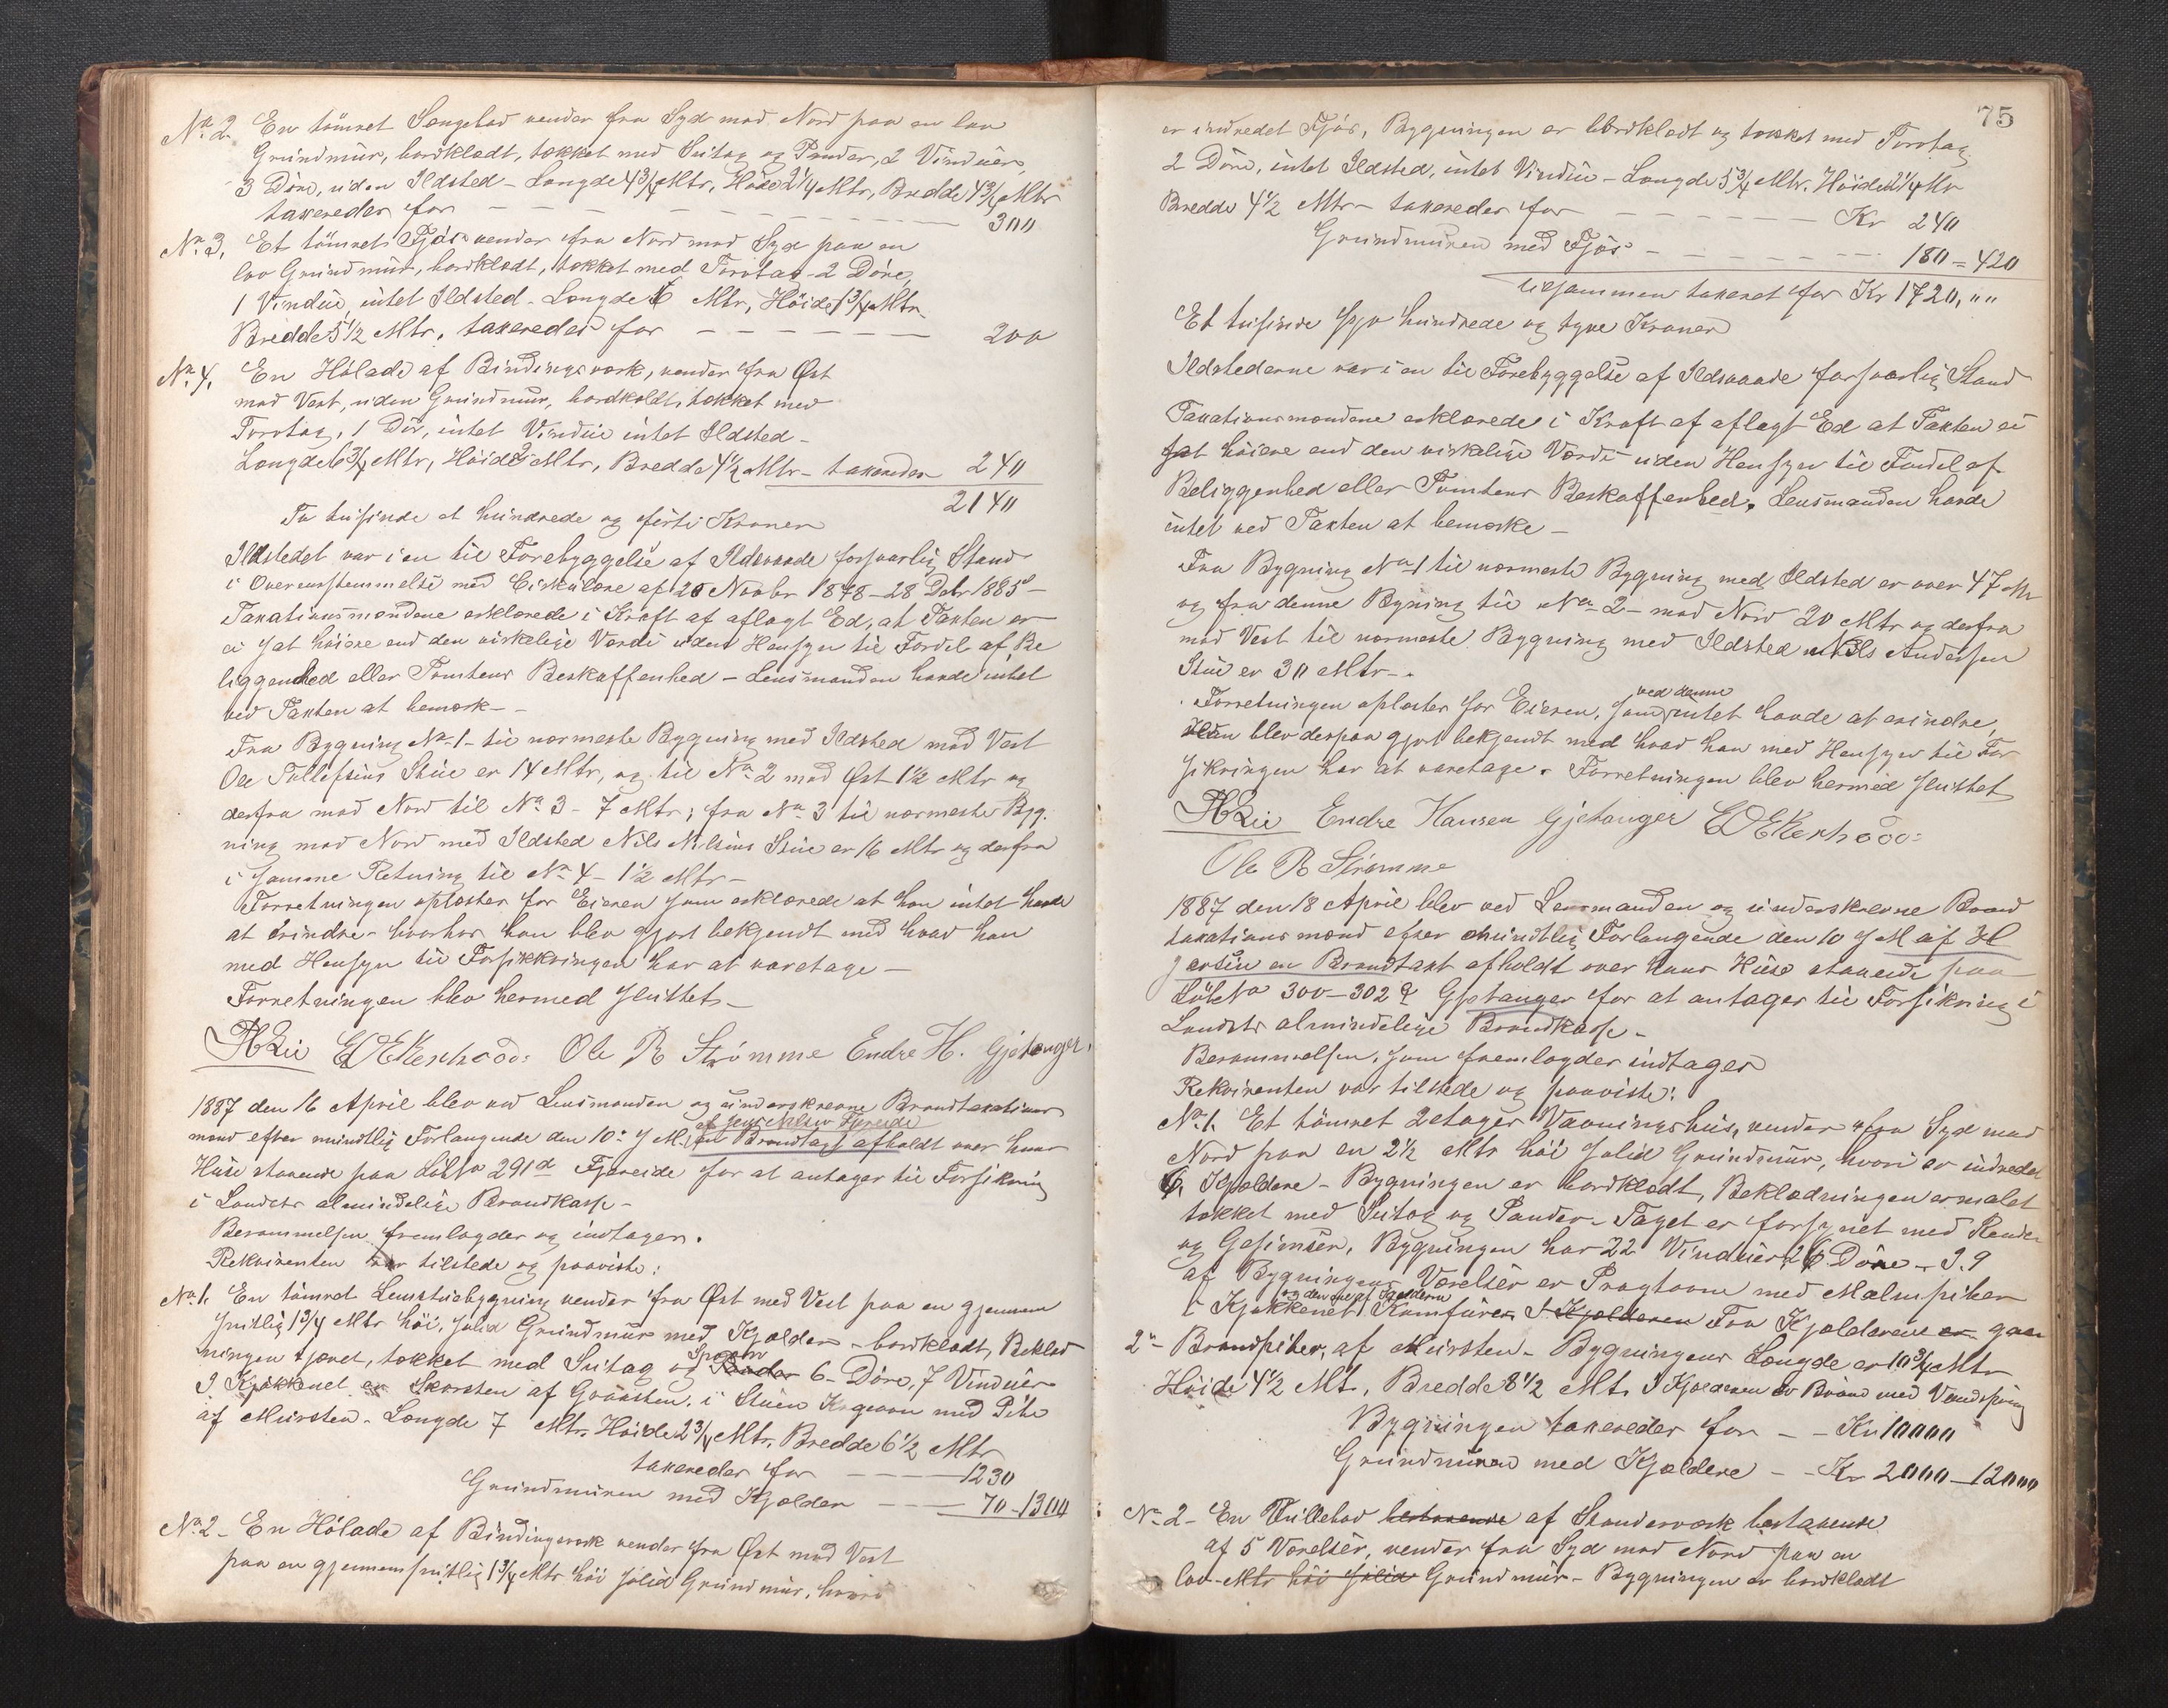 No 2. En tömret Sengebod vender fra Syd mod Nord paa en lav
Grundmur, bordklædt, tækket med Sutag og Pander, 2 Vinduer,
3 Döre, uden Ildsted - Længde 4 3/4 Mtr, Höide 2 1/4 Mtr, Bredde 4 3/4 Mtr
taxeredes for 300
No 3. Et tömret Fjös vender fra Nord mod Syd paa en
lav Grundmur, bordklædt, tækket med Torvtag - 2 Döre,
1 Vindue, intet Ildsted - Længde 6 Mtr, Höide 1 3/4 Mtr
Bredde 5 1/2 Mtr, taxeredes for 200
No 4. En Hölade af Bindingsværk, vender fra Øst
mod Vest, uden Grundmur, bordklædt, tækket med
Torvtag, 1 Dör, intet Vindue intet Ildsted -
Længde 6 3/4 Mtr, Höide 2 Mtr, Bredde 4 1/2 Mtr - taxeredes 240
2140
To tusinde et hundrede og förti Kroner
Ildstedet var i en til Forebyggelse af Ildsvaade forsvarlig Stand
i Overensstemmelse med Cirkulære af 20 Novbr 1878 - 28 Debr 1885 -
Taxationsmændene erklærede i Kraft af aflagt Ed, at Taxten er
ei sat höiere end den virkelige Værdi uden Hensyn til Fordel af Be
liggenhed eller Tomtens Beskaffenhed - Lensmanden havde intet
ved Taxten at bemærk -
Fra Bygning No 1 - til nærmeste Bygning med Ildsted mod Vest
Ole Tollefsens Stue er 14 Mtr, og til No 2 mod Øst 1 1/2 Mtr og
derfra mod Nord til No 3 - 7 Mtr; fra No 3 til nærmeste Byg-
ning mod Nord med Ildsted Nils Nilsens Stue er 16 Mtr og derfra
i samme Retning til No 4 - 1 1/2 Mtr -
Forretningen oplæstes for Eieren som erklærede at han intet havde
at erindre - hvorhos han blev gjort bekjendt med hvad han
med Hensyn til Forsikkringen har at varetage -
Forretningen blev hermed sluttet -
Ole R Strömme Endre H. Gjetanger.
1887 den 16 April blev ved Lensmanden og underskrevne Brandtaxations
af Jens Nilsen Fjæreide
mænd efter mundtlig Forlangende den 10: d M. en Brandtaxt afholdt over hans
Huse staaende paa Löbe No 291d Fjæreide for at antages til Forsikring
i Landets almindelige Brandkasse -
Berammelsen fremlagdes og indtages.
Rekvirenten var tilstede og paaviste:
No 1. En tömret Lemstuebygning vender fra Øst mod Vest paa en gjennem
snitlig 1 3/4 Mtr höi, solid Grundmur med Kjælder - bordklædt, Beklæd
ningen tjæret, tækket med Sutag og Pander 6 - Döre, 7 Vinduer
I Kjökkenet er Skorsten af Graasten, i Stuen Kogeovn med Pibe
af Mursten - Længde 7 Mtr. Höide 2 3/4 Mtr. Bredde 6 1/2 Mtr
taxeredes for 1230
Grundmuren med Kjælder 70 - 1300
No 2 - En Hölade af Bindingsværk vender fra Øst mod Vest
paa en gjennemsnitlig 1 3/4 Mtr höi solid Grundmur, hvori
75
er indredet Fjös, Bygningen er bordklædt og tækket med Torvtag
2 Döre, intet Ildsted, intet Vindue - Længde 5 3/4 Mtr. Höide 2 1/4 Mtr
Bredde 4 1/2 Mtr - taxeredes for Kr 240
Grundmuren med Fjös 180 = 420
tilsammen taxeret for Kr 1720,""
Et tusinde syv hundrede og tyve Kroner
Ildstederne var i en til Forebyggelse af Ildsvaade forsvarlig Stand
Taxationsmændene erklærede i Kraft af aflagt Ed at Taxten ei
sat höiere end den virkelige Værdi uden Hensyn til Fordel af
Beliggenhed eller Tomtens Beskaffenhed. Lensmanden havde
intet ved Taxten at bemærke -
Fra Bygning No 1 til nærmeste Bygning med Ildsted er over 47 Mtr
og fra denne Bygning til No 2 - mod Nord 20 Mtr og derfra
mod Vest til nærmeste Bygning med Ildsted Nils Andersens
Stue er 30 Mtr -
ved denne
Forretningen oplæstes for Eieren, som intet havde at erindre,
Han blev derpaa gjort bekjendt med hvad han med Hensyn til For
sikringen har at varetage. Forretningen blev hermed sluttet
Endre Hansen Gjetanger
Ole R Strömme
1887 den 18 April blev ved Lensmanden og underskrevne Brand
taxationsmænd efter mundtlig Forlangende den 10 d M af H
Jersin en Brandtaxt afholdt over hans Huse staaende paa
Löbe No 300 - 302 Gjetanger for at antages til Forsikring i
Landets almindelige Brandkasse -
Berammelsen, som fremlagdes indtages
Rekvirenten var tilstede og paaviste:
No 1. Et tömret 2 etages Vaaningshus, vender fra Syd mod
Nord paa en 2 1/2 Mtr höi solid Grundmur, hvori er indredet
6 Kjældere - Bygningen er bordklædt, Beklædningen er malet
tækket med Sutag og Pander - Taget er forsynet med Render
og Gesimser, Bygningen har 22 Vinduer 26 Döre - I 9
af Bygningens Værelser er Pragtovne med Malmpiber
og den ene af Kjælderne
i Kjökkenet Komfurer I Kjælderen Fra Kjælderene er gaar
2 - Brandpiber, af Mursten - Bygningens Længde er 10 3/4 Mtr
Höide 4 1/2 Mt, Bredde 8 1/2 Mt. I Kjælderen er Brönd med Vandspring
Bygningen taxeredes for - - Kr 10000
Grundmuren med Kjældere - - Kr 2000 - 12000
No 2 - En Rullebod bestaaende af Standerværk bestaaende
af 5 Værelser, vender fra Syd mod Nord paa en
lav - Mtr höi solid Grundmur - Bygningen er bordklædt